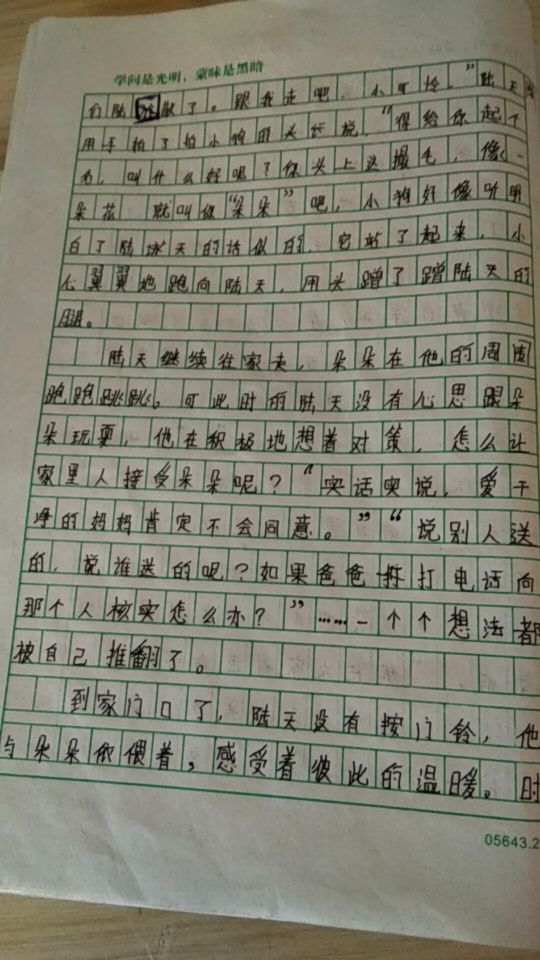 学问是光明，蒙昧是黑暗
们陆 散了。跟我走吧，小可怜，”陆天
用手拍了拍小狗的头 说，“得给你起个
名，叫什么好呢？你头上这撮毛，像一
朵花，就叫你“朵朵”吧，小狗好像听明
白了陆 天的话似的，它站了起来，小
心翼翼地跑向陆天，用头蹭了蹭陆天的
腿。
陆天继续往家走，朵朵在他的周围
跑跑跳跳。可此时的陆天没有心思跟朵
朵玩耍，他在积极地想着对策，怎么让
家里人接受朵朵呢？“实话实说，爱干
净的妈妈肯定不会同意。”“说别人送
的，说谁送的呢？如果爸爸拆打电话向
那个人核实怎么办？”……一个个想法都
被自己推翻了。
到家门口了，陆天没有按门铃，他
与朵朵依偎着，感受着彼此的温暖。时
05643.2